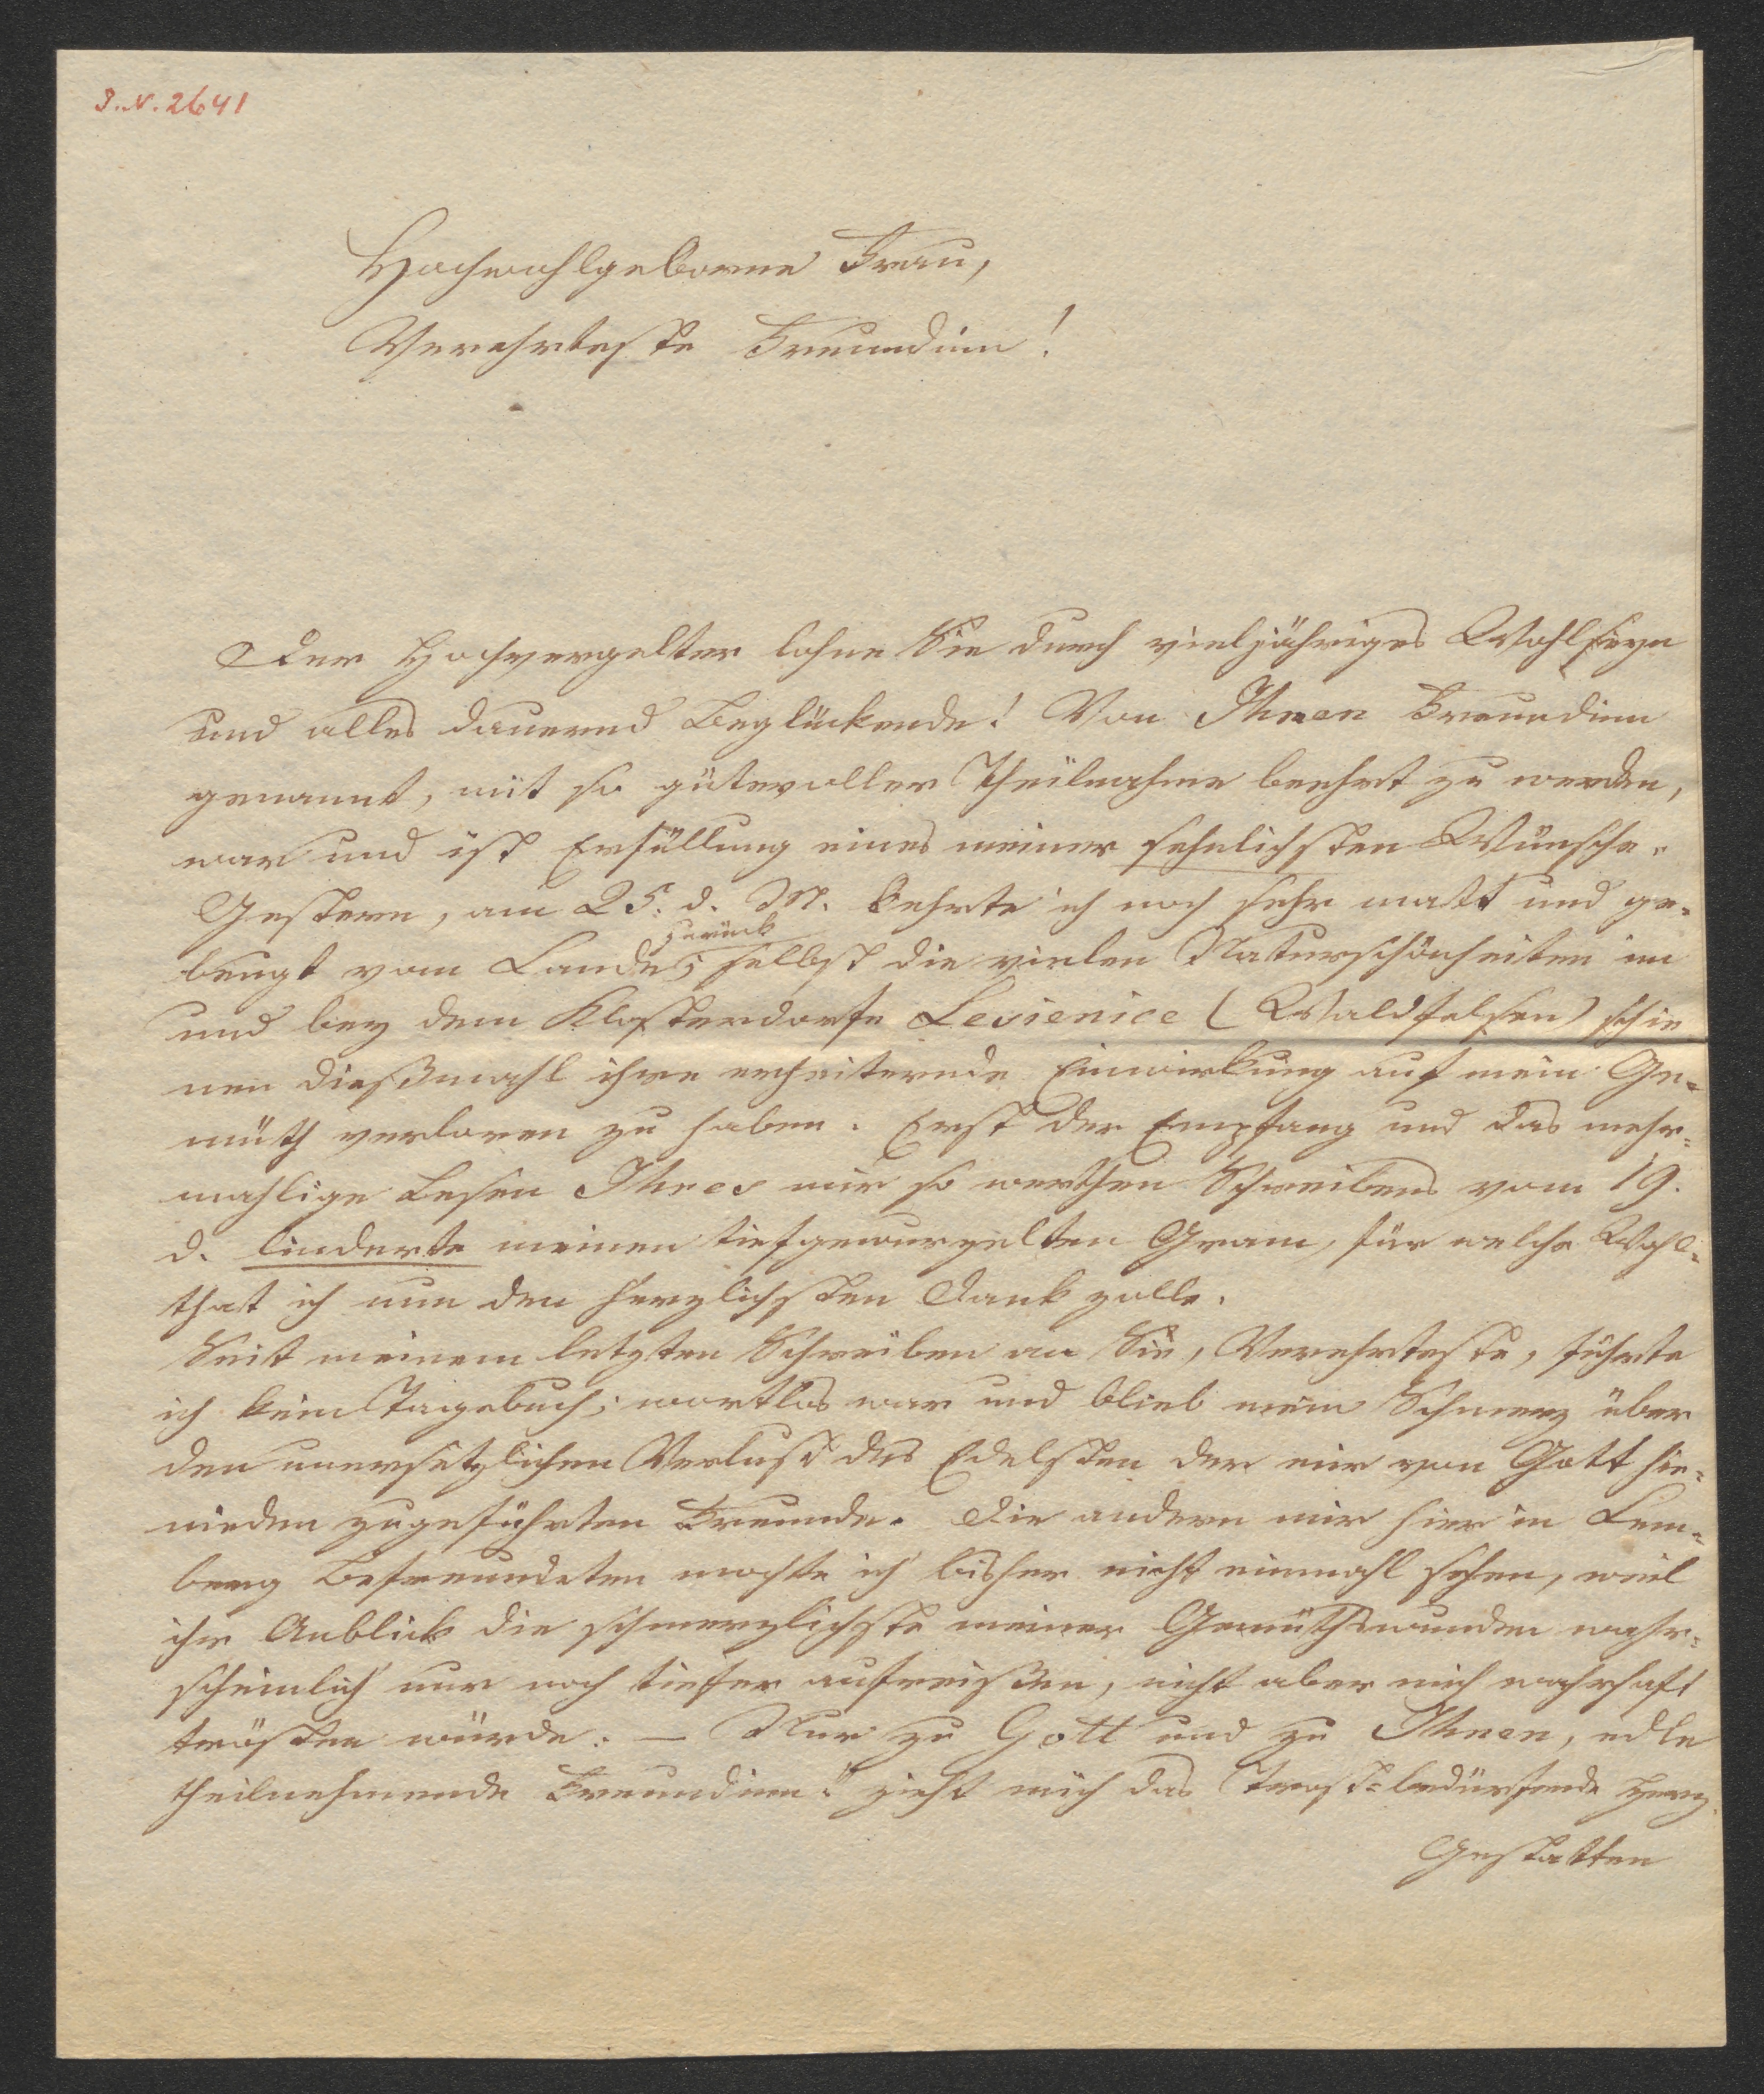 I. N. 2641
Hochwohlgeborne Frau,
Verehrteste Freundinn!
Der Hochvergelter lohne Sie durch vieljähriges Wohlseyn
und alles dauernd Beglückende! Von Ihnen Freundinn
genannt, mit so gütevoller Theilnahme beehrt zu werden,
war und ist Erfüllung eines meiner sehnlichsten Wünsche.
Gestern, am 25. d. M. kehrte ich noch sehr matt und ge-
zurück
beugt vom Lande; selbst die vielen Naturschönheiten im
und bey dem Klosterdorfe Lesienice (Waldfelsen) schie
nen dießmahl ihre erheiternde Einwirkung auf mein Ge-
müth verloren zu haben. Erst der Empfang und das mehr-
mahlige Lesen Ihres mir so werthen Schreibens vom 19.
d. linderte meinen tiefgewurzelten Gram, für welche Wohl-
that ich nun den herzlichsten Dank zolle.
Seit meinem letzten Schreiben an Sie, Verehrteste, führte
ich kein Tagebuch; wortlos war und blieb mein Schmerz über
den unersetzlichen Verlust des Edelsten der mir von Gott hie-
nieden zugeführten Freunde. Die andern mir hier in Lem-
berg Befreundeten mochte ich bisher nicht einmahl sehen, weil
ihr Anblick die schmerzlichste meiner Gemüthswunden wahr-
scheinlich nur noch tiefer aufreißen, nicht aber mich wahrhaft
trösten würde. — Nur zu Gott und zu Ihnen, edle
theilnehmende Freundinn! zieht mich das Trost-bedürfende Herz.
Gestatten